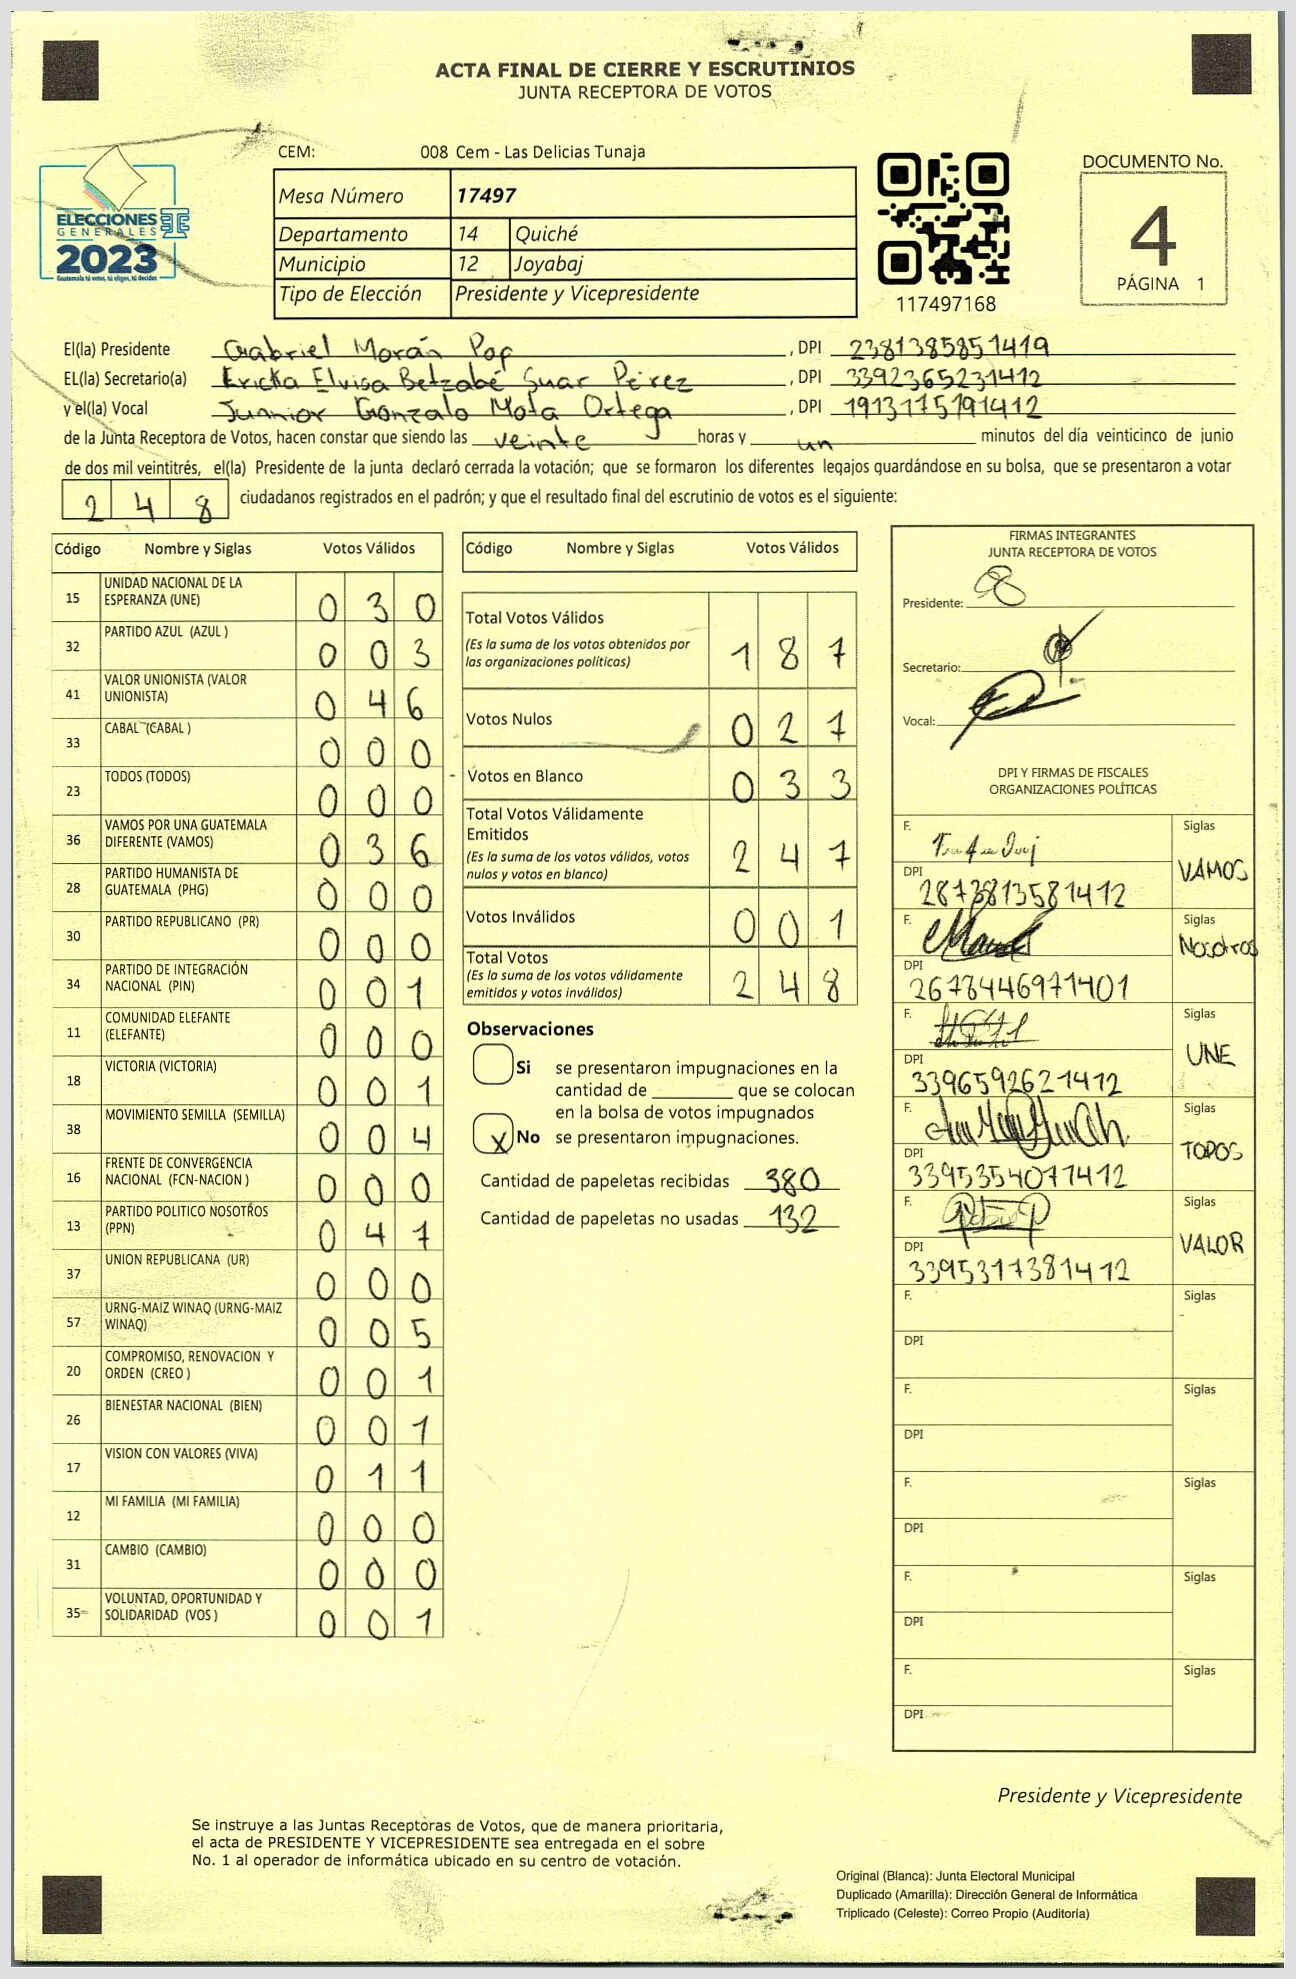 ACTA FINAL DE CIERRE Y ESCRUTINIOS
JUNTA RECEPTORA DE VOTOS
CEM: 008 Cem - Las Delicias Tunaja
ELECCIONES
GENERALES
2023
Guatemala tú votes, tú eliges, tú decides
Mesa Número 17497
Departamento 14 Quiché
Municipio 12 Joyabaj
Tipo de Elección Presidente y Vicepresidente
117497168
DOCUMENTO No.
4
PÁGINA 1
El(la) Presidente Gabriel Morán Pop , DPI 2381385851419
EL(la) Secretario(a) Ericka Elvisa Betzabé Suar Pérez , DPI 3392365231412
y el(la) Vocal Junnior Gonzalo Mota Ortega , DPI 1913175191412
de la Junta Receptora de Votos, hacen constar que siendo las veinte horas y un minutos del día veinticinco de junio
de dos mil veintitrés, el(la) Presidente de la junta declaró cerrada la votación; que se formaron los diferentes legajos quardándose en su bolsa, que se presentaron a votar
2 4 8 ciudadanos registrados en el padrón; y que el resultado final del escrutinio de votos es el siguiente:
Código Nombre y Siglas Votos Válidos
15 UNIDAD NACIONAL DE LA
ESPERANZA (UNE) 0 3 0
32 PARTIDO AZUL (AZUL ) 0 0 3
41 VALOR UNIONISTA (VALOR
UNIONISTA) 0 4 6
33 CABAL (CABAL ) 0 0 0
23 TODOS (TODOS) 0 0 0
36 VAMOS POR UNA GUATEMALA
DIFERENTE (VAMOS) 0 3 6
28 PARTIDO HUMANISTA DE
GUATEMALA (PHG) 0 0 0
30 PARTIDO REPUBLICANO (PR) 0 0 0
34 PARTIDO DE INTEGRACIÓN
NACIONAL (PIN) 0 0 1
11 COMUNIDAD ELEFANTE
(ELEFANTE) 0 0 0
18 VICTORIA (VICTORIA) 0 0 1
38 MOVIMIENTO SEMILLA (SEMILLA) 0 0 4
16 FRENTE DE CONVERGENCIA
NACIONAL (FCN-NACION ) 0 0 0
13 PARTIDO POLITICO NOSOTROS
(PPN) 0 4 7
37 UNION REPUBLICANA (UR) 0 0 0
57 URNG-MAIZ WINAQ (URNG-MAIZ
WINAQ) 0 0 5
20 COMPROMISO, RENOVACION Y
ORDEN (CREO ) 0 0 1
26 BIENESTAR NACIONAL (BIEN) 0 0 1
17 VISION CON VALORES (VIVA) 0 1 1
12 MI FAMILIA (MI FAMILIA) 0 0 0
31 CAMBIO (CAMBIO) 0 0 0
35 VOLUNTAD, OPORTUNIDAD Y
SOLIDARIDAD (VOS ) 0 0 1
Código Nombre y Siglas Votos Válidos
Total Votos Válidos
(Es la suma de los votos obtenidos por
las organizaciones políticas) 1 8 7
Votos Nulos 0 2 7
Votos en Blanco 0 3 3
Total Votos Válidamente
Emitidos
(Es la suma de los votos válidos, votos
nulos y votos en blanco) 2 4 7
Votos Inválidos 0 0 1
Total Votos
(Es la suma de los votos válidamente
emitidos y votos inválidos) 2 4 8
Observaciones
Si se presentaron impugnaciones en la
cantidad de ________ que se colocan
en la bolsa de votos impugnados
X No se presentaron impugnaciones.
Cantidad de papeletas recibidas 380
Cantidad de papeletas no usadas 132
FIRMAS INTEGRANTES
JUNTA RECEPTORA DE VOTOS
Presidente:
Secretario:
Vocal:
DPI Y FIRMAS DE FISCALES
ORGANIZACIONES POLÍTICAS
F. Siglas
VAMOS
DPI 2873813581412
F. Siglas
Nosotros
DPI 2678446971401
F. Siglas
UNE
DPI 3396592621412
F. Siglas
TODOS
DPI 3395354071412
F. Siglas
VALOR
DPI 3395317381412
F. Siglas
DPI
F. Siglas
DPI
F. Siglas
DPI
F. Siglas
DPI
F. Siglas
DPI
Presidente y Vicepresidente
Se instruye a las Juntas Receptoras de Votos, que de manera prioritaria,
el acta de PRESIDENTE Y VICEPRESIDENTE sea entregada en el sobre
No. 1 al operador de informática ubicado en su centro de votación.
Original (Blanca): Junta Electoral Municipal
Duplicado (Amarilla): Dirección General de Informática
Triplicado (Celeste): Correo Propio (Auditoría)